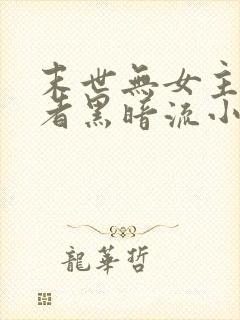 末世無女主
者黑暗流小
龍華哲